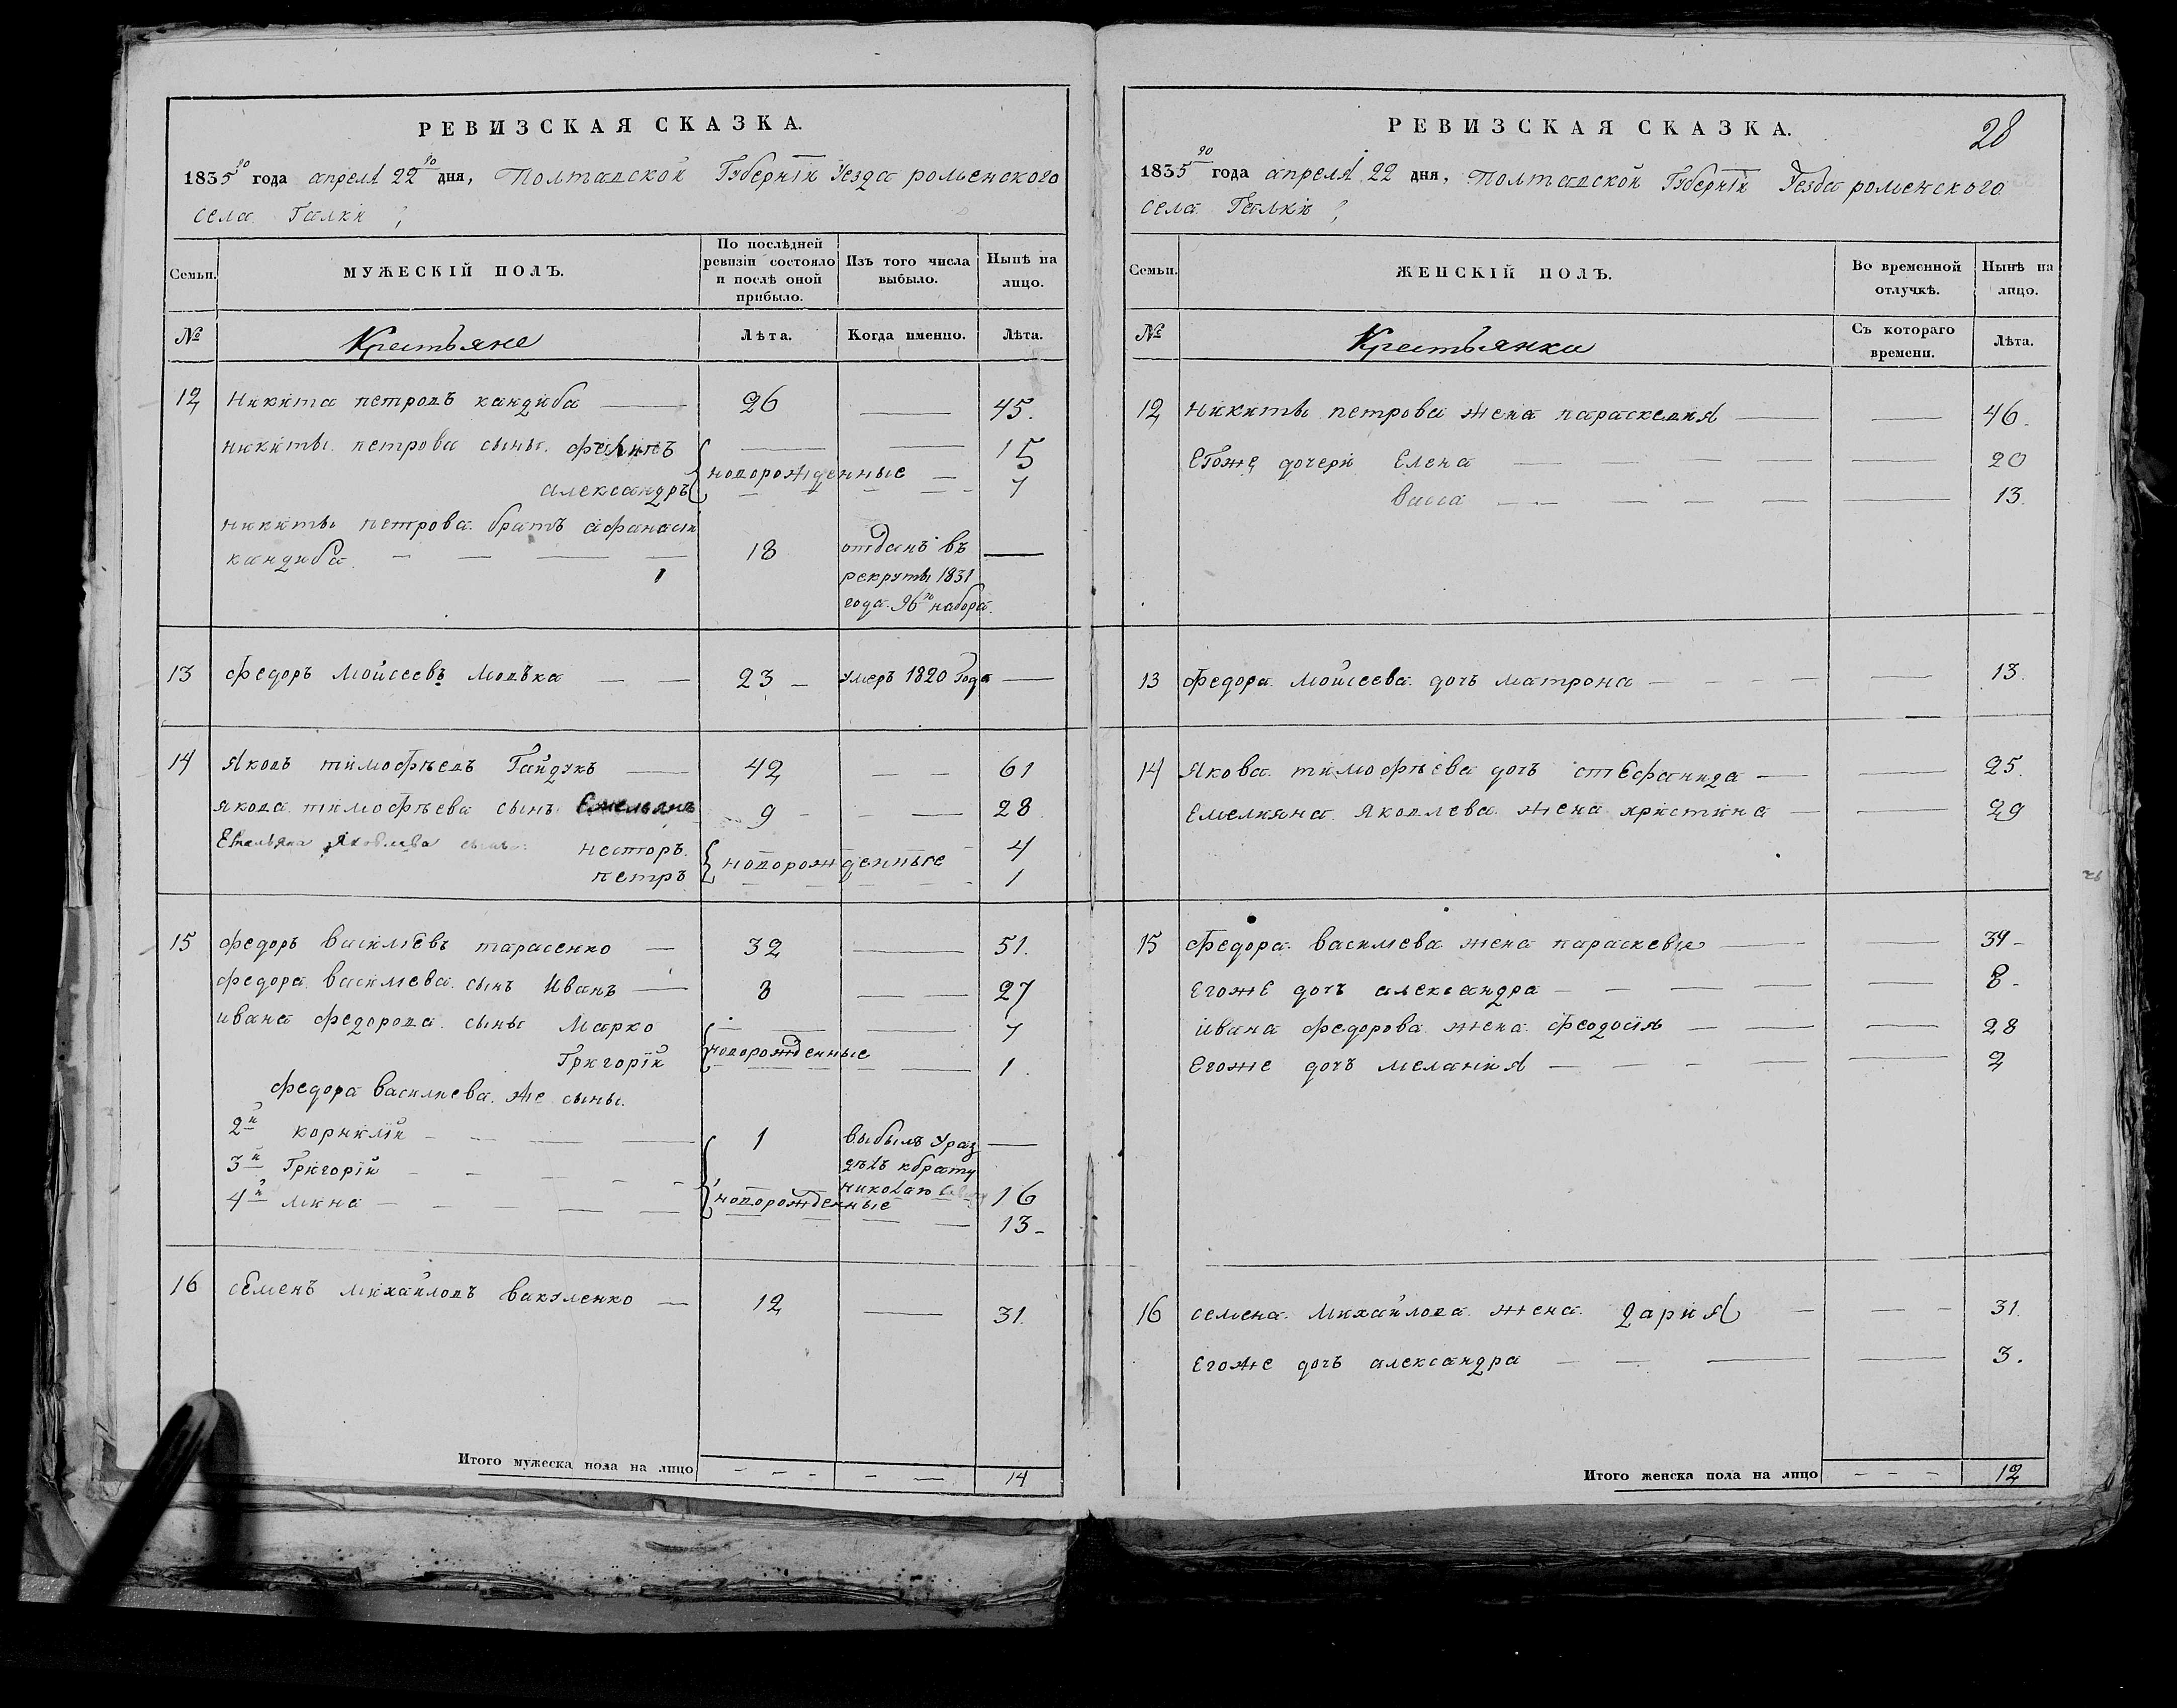 РЕВИЗСКАЯ СКАЗКА.
1835го года апреля 22го дня, Полтавской Губернїи Уезда роменского
села Галки;
Семьи. МУЖЕСКІЙ ПОЛЪ. По послѣдней ревизіи состояло и послѣ оной прибыло. Изъ того числа выбыло. Нынѣ на лицо.
№ Крестьяне Лѣта. Когда именно. Лѣта.
12 Никита петровъ кандиба 26 45.
никиты петрова сыны. 15
александръ новорожденные 7
никиты петрова братъ афанасїи
кандиба 18 отданъ въ
рекруты 1831
года. 96го набора.
13 федоръ Мойсеевъ Мовъка 23 умеръ 1820 Года
14 Яковъ тимофѣевъ Гайдукъ 42 61
якова тимофѣева сынъ Емельянъ 9 28
Емельяна Яковлева сыны несторъ. 4
петръ новорожденные 1
15 федоръ василиевъ тарасенко 32 51.
федора василиева сынъ Иванъ 8 27
ивана федорова сыны Марко 7
Григорїй новорожденные 1.
федора василиева же сыны.
2й корнилїй 1 выбылъ Ураз
3й Григорїй дѣлъ кбрату
николаю 16
4й мина новорожденные 13
16 семенъ михайловъ вакуленко 12 31.
Итого мужеска пола на лицо 14
РЕВИЗСКАЯ СКАЗКА. 28
1835го года апреля 22 дня, полтавской Губернїи Уезда роменского
села Галки;
Семьи. ЖЕНСКІЙ ПОЛЪ. Во временной отлучкѣ. Нынѣ на лицо.
№ Крестьянки Съ котораго времени. Лѣта.
12 никиты петрова жена параскевия 46.
Егоже дочери Елена 20
васса 13.
13 федора Мойсеева дочь матрона 13.
14 Якова тимофѣева дочь стефанида 25.
Емелияна Яковлева жена христина 29
15 федора василиева жена параскевия 39
Егоже дочь александра 8
ивана федорова жена феодосїя 28
Егоже дочь мелания 2
16 семена Михайлова жена дария 31.
Егоже дочь александра 3.
Итого женска пола на лицо 12